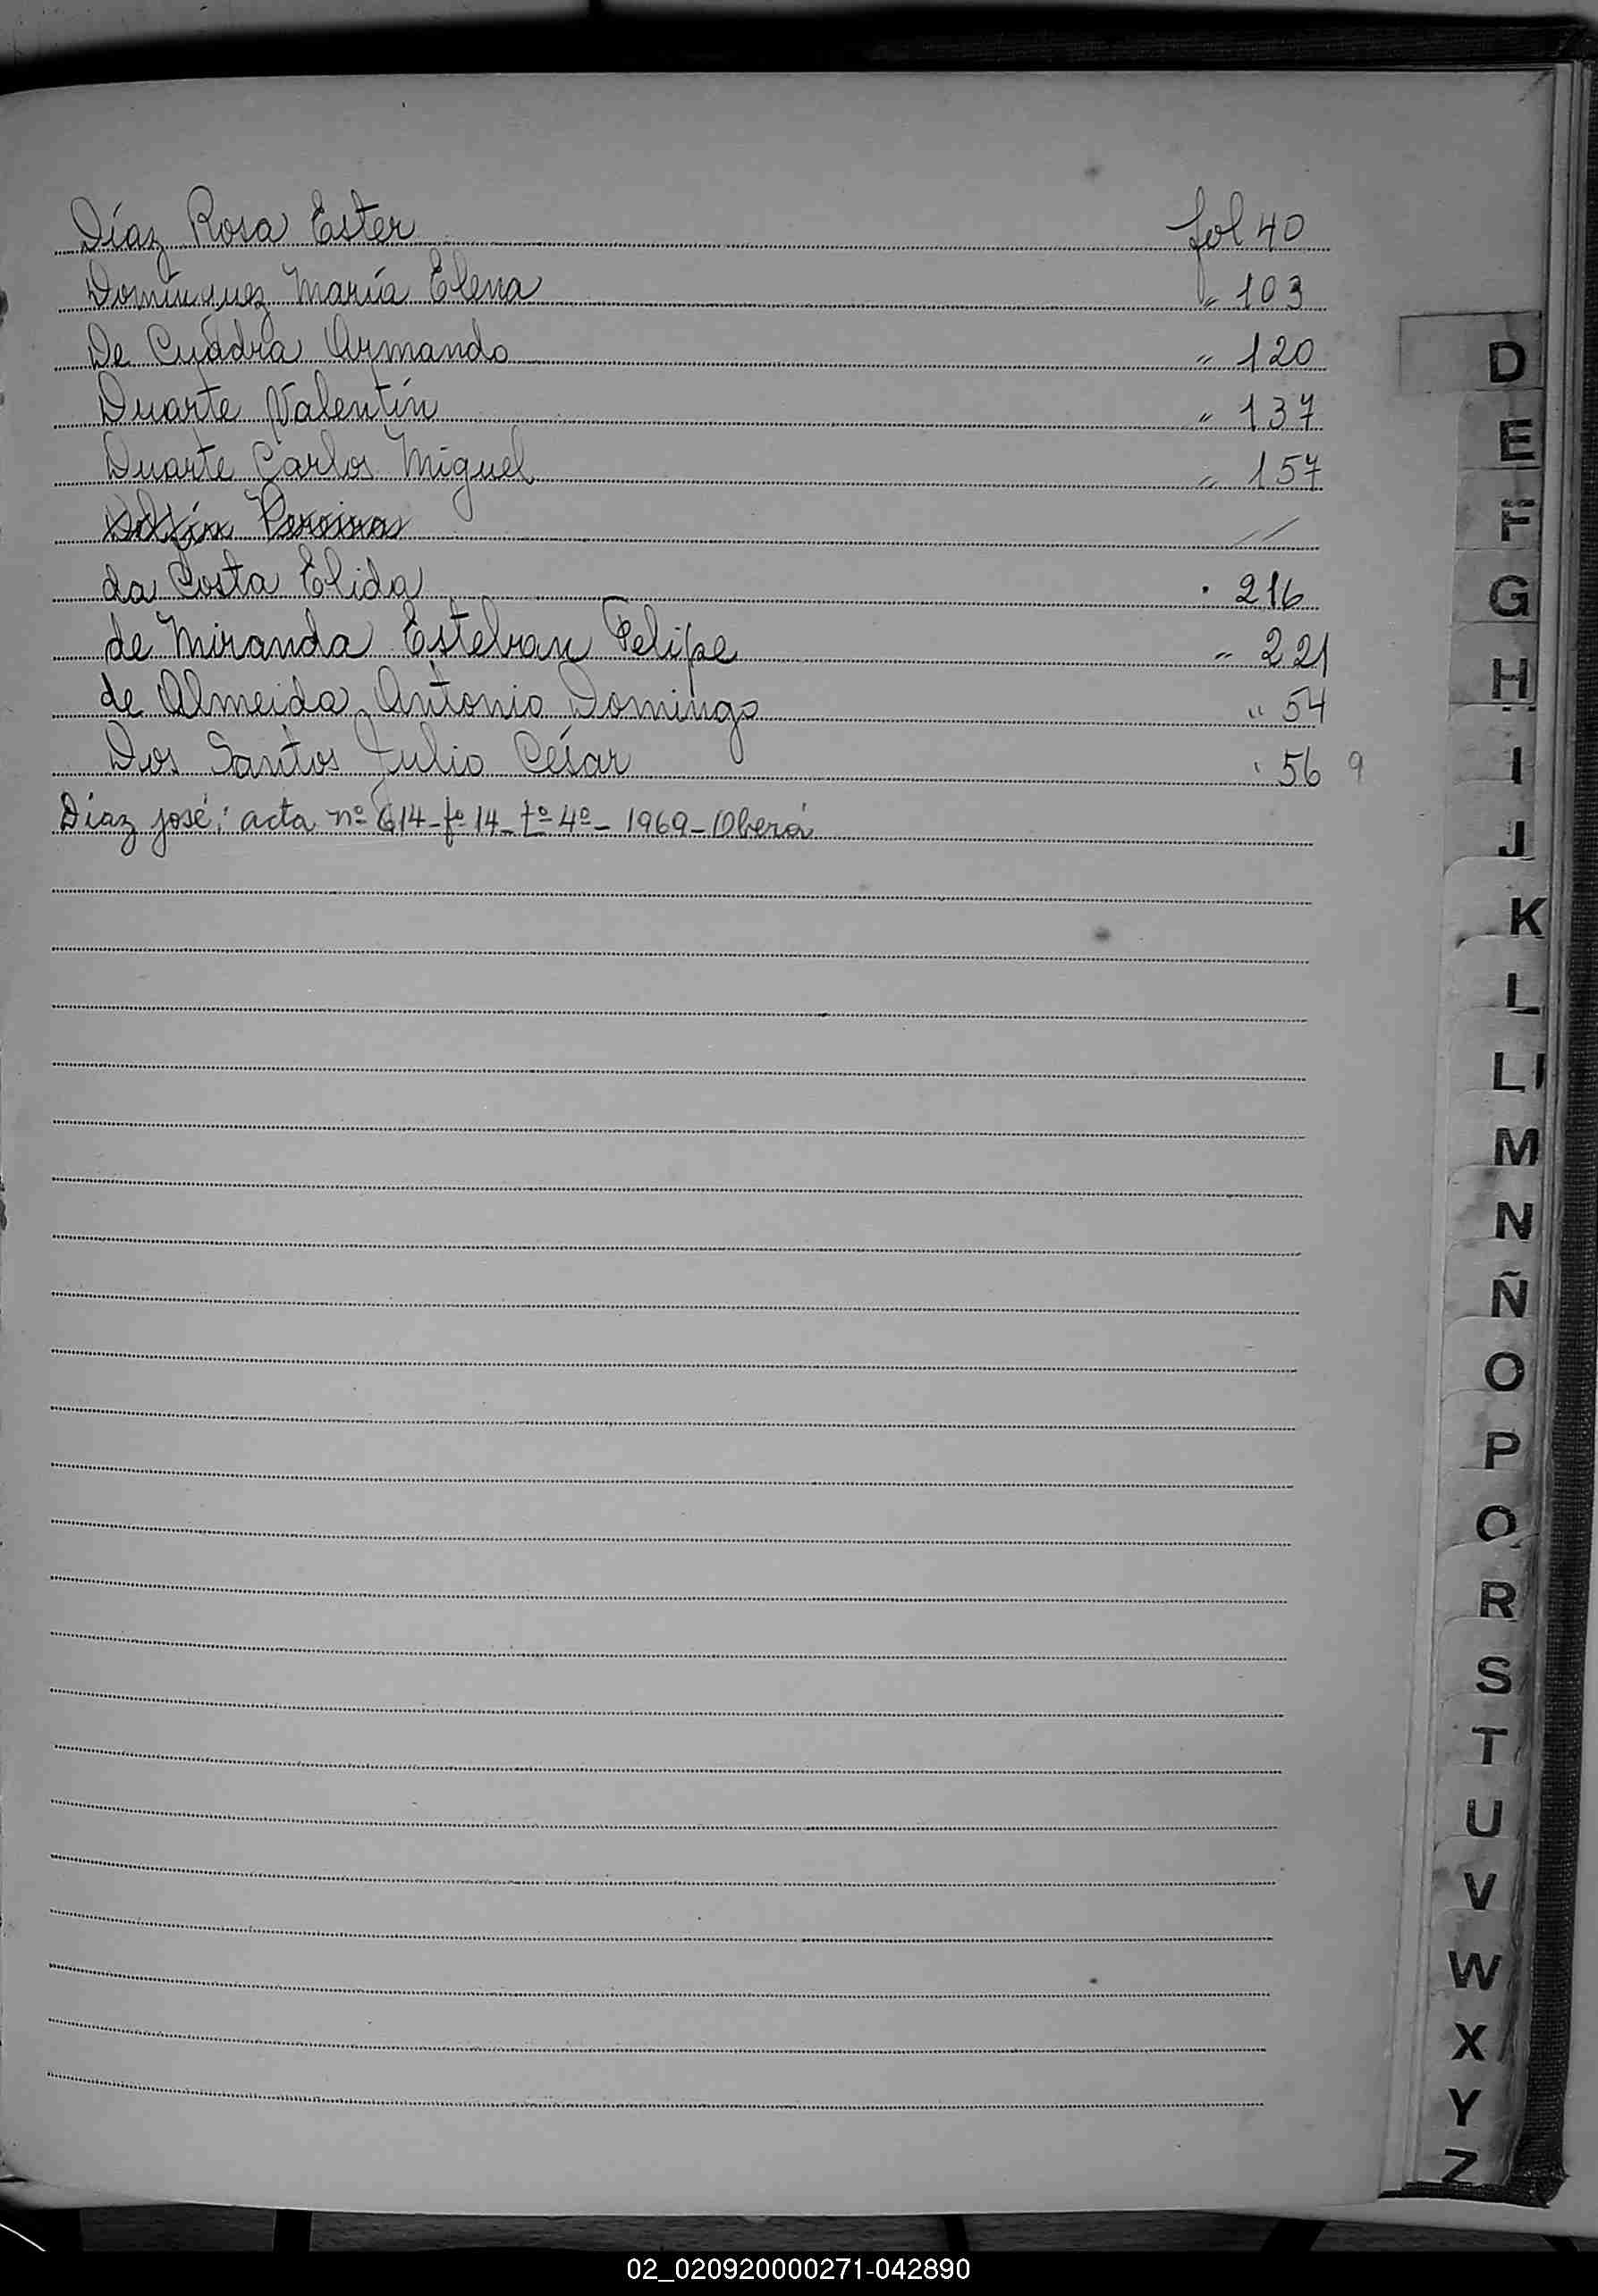 Díaz Rosa Ester fol 40
Domínguez María Elena " 103
De Cuadra Armando " 120
Duarte Valentín " 137
Duarte Carlos Miguel " 157
Pereira //
da Costa Elida " 216
de Miranda Esteban Felipe " 221
de Almeida Antonio Domingo " 54
Dos Santos Julio César " 56 9
Díaz José: acta nº 614-fº 14-tº 4º- 1969-Oberá
D
E
F
G
H
I
J
K
L
LI
M
N
Ñ
O
P
Q
R
S
T
U
V
W
X
Y
Z
02_020920000271-042890